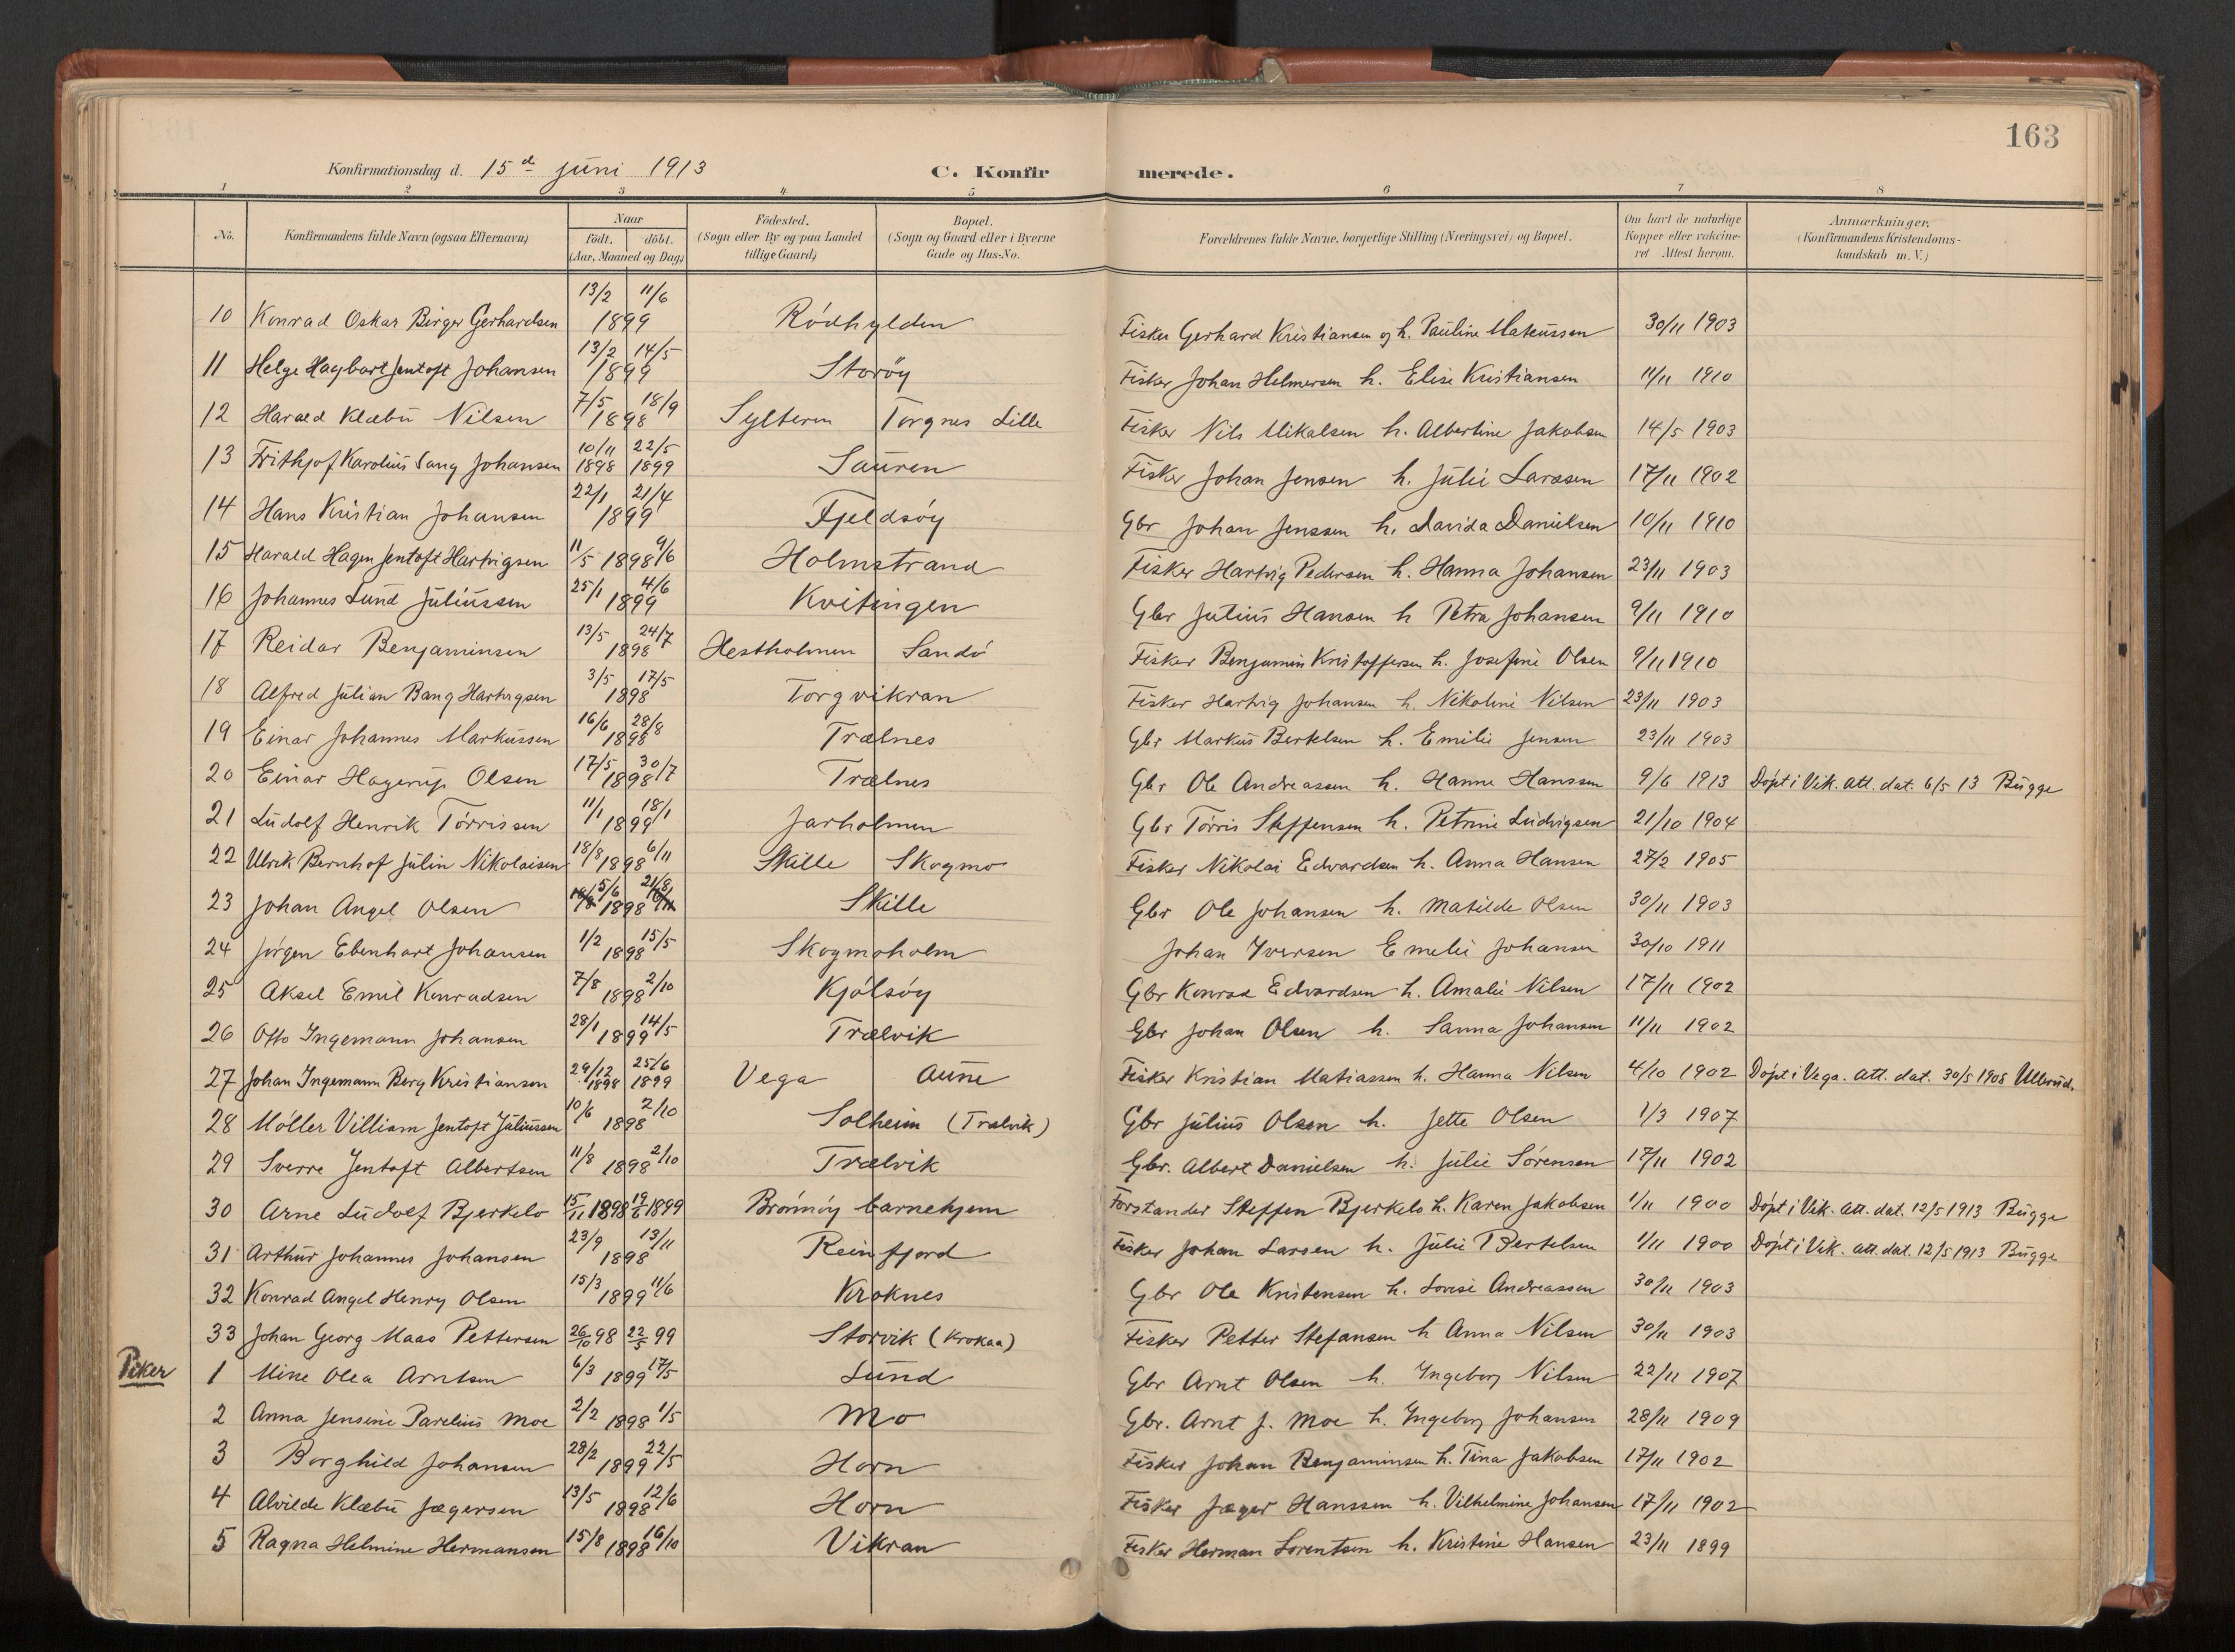 163
Konfirmationsdag d. 15d juni 1913 C. Konfirmerede.
1 2 3 4 5 6 7 8
No. Konfirmandens fulde Navn (ogsaa Efternavn) Naar födt. döbt. (Aar, Maaned og Dag) Födested. (Sogn eller By og paa Landet tillige Gaard) Bopæl. (Sogn og Gaard eller i Byerne Gade og Hus-No. Forældrenes fulde Navne, borgerlige Stilling (Næringsvei) og Bopæl. Om havt de naturlige Kopper eller vakcineret Attest herom. Anmærkninger, (Konfirmandens Kristendomskundskab m. V.)
10 Konrad Oskar Birger Gerhardsen 13/2 11/6 1899 Rödhylden Fisker Gerhard Kristiansen og h. Pauline Mateussen 30/11 1903
11 Helge Hagbart Jentoft Johansen 13/2 14/5 1899 Storöy Fisker Johan Helmersen h. Elise Kristiansen 11/11 1910
12 Harald Klæbu Nilsen 7/5 18/9 1898 Sylteren Torgnes Lille Fisker Nils Mikalsen h. Albertine Jakobsen 14/5 1903
13 Frithjof Karolius Sang Johansen 10/11 1898 22/5 1899 Sauren Fisker Johan Jensen h. Julie Larssen 17/11 1902
14 Hans Kristian Johansen 22/1 21/4 1899 Fjeldsöy Gbr Johan Jenssen h. Davida Danielsen 10/11 1910
15 Harald Hagen Jentoft Hartvigsen 11/5 1898 9/6 Holmstrand Fisker Hartvig Pedersen h. Hanna Johansen 23/11 1903
16 Johannes Lund Juliussen 25/1 1899 4/6 Kvitingen Gbr Julius Hansen h Petra Johansen 9/11 1910
17 Reidar Benjaminsen 13/5 24/7 1898 Hestholmen Sandö Fisker Benjamin Kristoffersen h. Josefine Olsen 9/11 1910
18 Alfred Julian Bang Hartvigsen 3/5 17/5 1898 Torgvikran Fisker Hartvig Johansen h. Nikoline Nilsen 23/11 1903
19 Einar Johannes Markussen 16/6 28/8 1898 Trælnes Gbr Markus Bertelsen h. Emilie Jensen 23/11 1903
20 Einar Hagerup Olsen 17/5 30/7 1898 Trælnes Gbr Ole Andreassen h. Hanne Hanssen 9/6 1913 Döpt i Vik. att. dat. 6/5 13 Bugge
21 Ludolf Henrik Törrissen 11/1 18/1 1899 Jarholmen Gbr Törris Steffensen h. Petrine Ludvigsen 21/10 1904
22 Ulrik Bernhof Julin Nikolaisen 18/8 1898 6/11 Skille Skogmo Fisker Nikolai Edvardsen h. Anna Hansen 27/2 1905
23 Johan Angel Olsen 5/6 21/8 1898 Skille Gbr Ole Johansen h. Matilde Olsen 30/11 1903
24 Jörgen Ebenhart Johansen 1/2 15/5 1898 Skogmoholm Johan Iversen Emelie Johansen 30/10 1911
25 Aksel Emil Konradsen 7/8 1898 2/10 Kjölsöy Gbr Konrad Edvardsen h. Amalie Nilsen 17/11 1902
26 Otto Ingemann Johansen 28/1 1899 14/5 Trælvik Gbr Johan Olsen h. Sanna Johansen 11/11 1902
27 Johan Ingemann Berg Kristiansen 29/12 1898 25/6 1899 Vega Aune Fisker Kristian Matiassen h. Hanna Nilsen 4/10 1902 Döpt i Vega. Att. dat. 30/5 1908 Ullerud.
28 Möller Villiam Jentoft Juliussen 10/6 1898 2/10 Solheim (Trælvik) Gbr Julius Olsen h. Jette Olsen 1/3 1907
29 Sverre Jentoft Albertsen 11/8 1898 2/10 Trælvik Gbr. Albert Danielsen h. Julie Sörensen 17/11 1902
30 Arne Ludolf Bjerkelo 15/11 1898 19/6 1899 Brönnöy barnehjem Forstander Steffen Bjerkelo h. Karen Jakobsen 1/11 1900 Döpt i Vik. Att. dat. 12/5 1913 Bugge
31 Arthur Johannes Johansen 23/9 13/11 1898 Reinfjord Fisker Johan Larsen h. Julie Bertelsen 1/11 1900 Döpt i Vik. att. dat. 12/5 1913 Bugge
32 Konrad Angel Henry Olsen 15/3 1899 11/6 Kroknes Gbr Ole Kristensen h. Lovise Andreassen 30/11 1903
33 Johan Georg Maas Pettersen 26/10 98 22/5 99 Storvik (Krokaa) Fisker Petter Stefansen h Anna Nilsen 30/11 1903
Piker 1 Mine Olea Arntsen 6/3 1899 17/5 Lund Gbr Arnt Olsen h. Ingeborg Nilsen 22/11 1907
2 Anna Jensine Parelius Moe 2/2 1898 1/5 Mo Gbr. Arnt J. Moe h. Ingeborg Johansen 28/11 1909
3 Borghild Johansen 28/2 1899 22/5 Horn Fisker Johan Benjaminsen h. Tina Jakobsen 17/11 1902
4 Alvilde Klæbu Jægersen 13/5 1898 12/6 Horn Fisker Jæger Hanssen h. Vilhelmine Johansen 17/11 1902
5 Ragna Helmine Hermansen 15/8 1898 16/10 Vikran Fisker Herman Lorentsen h. Kristine Hansen 23/11 1899